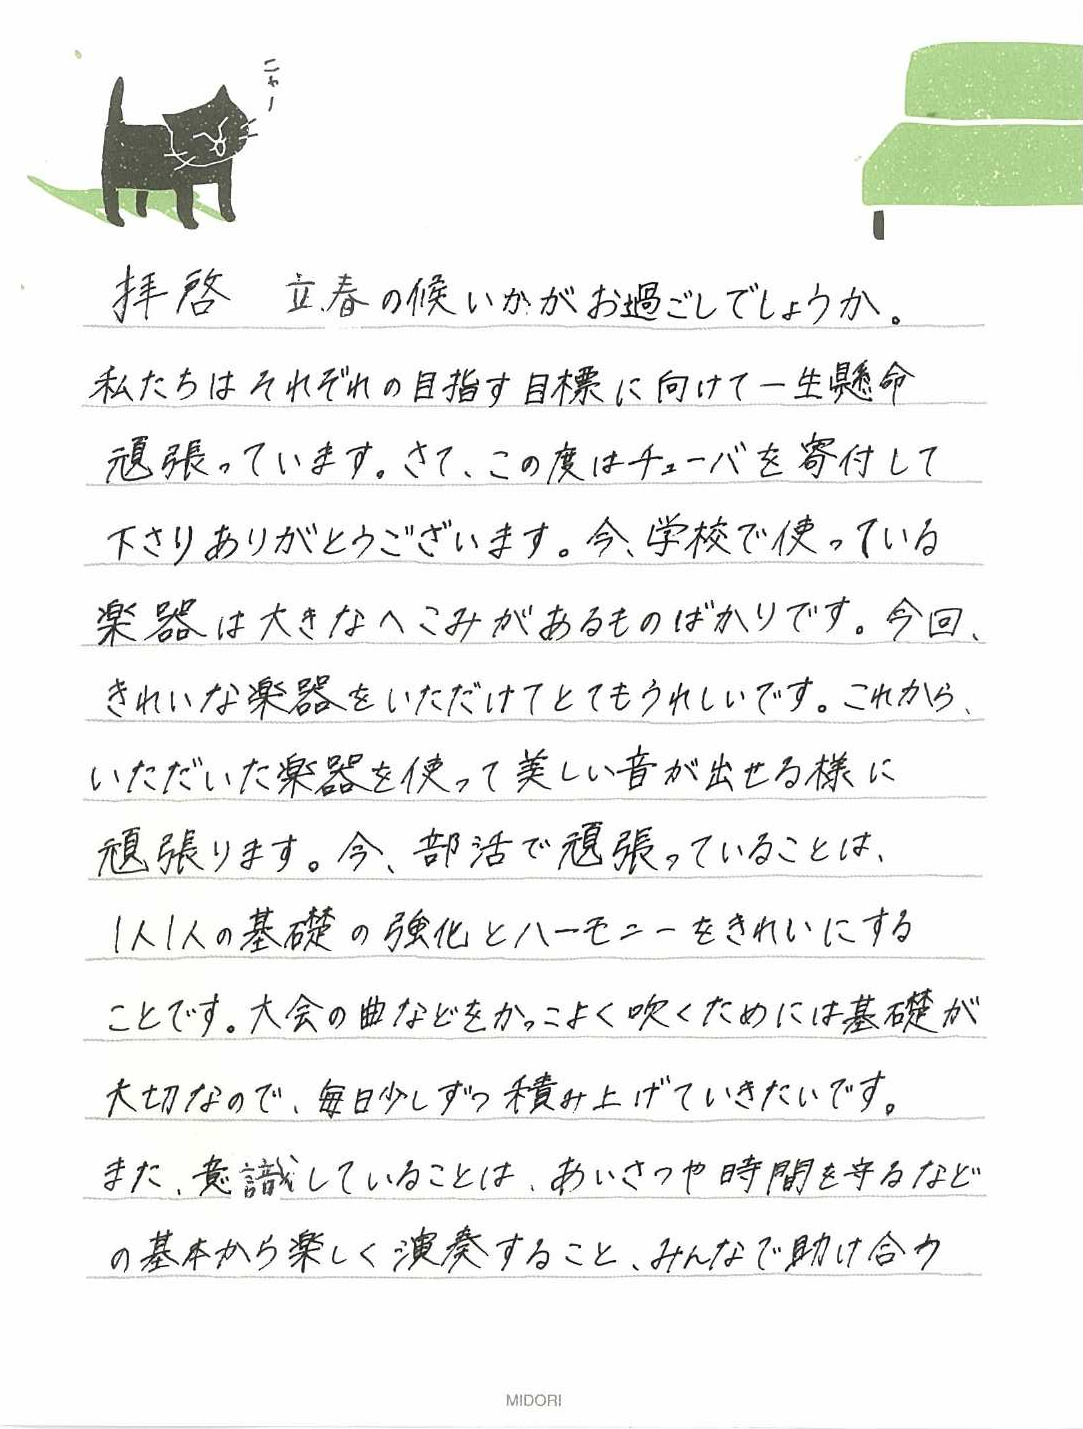 ニャー
拝啓　立春の候いかがお過ごしでしょうか。
私たちはそれぞれの目指す目標に向けて一生懸命
頑張っています。さて、この度はチューバを寄付して
下さりありがとうございます。今、学校で使っている
楽器は大きなへこみがあるものばかりです。今回、
きれいな楽器をいただけてとてもうれしいです。これから、
いただいた楽器を使って美しい音が出せる様に
頑張ります。今、部活で頑張っていることは、
1人1人の基礎の強化とハーモニーをきれいにする
ことです。大会の曲などをかっこよく吹くためには基礎が
大切なので、毎日少しずつ積み上げていきたいです。
また、意識していることは、あいさつや時間を守るなど
の基本から楽しく演奏すること、みんなで助け合う
MIDORI